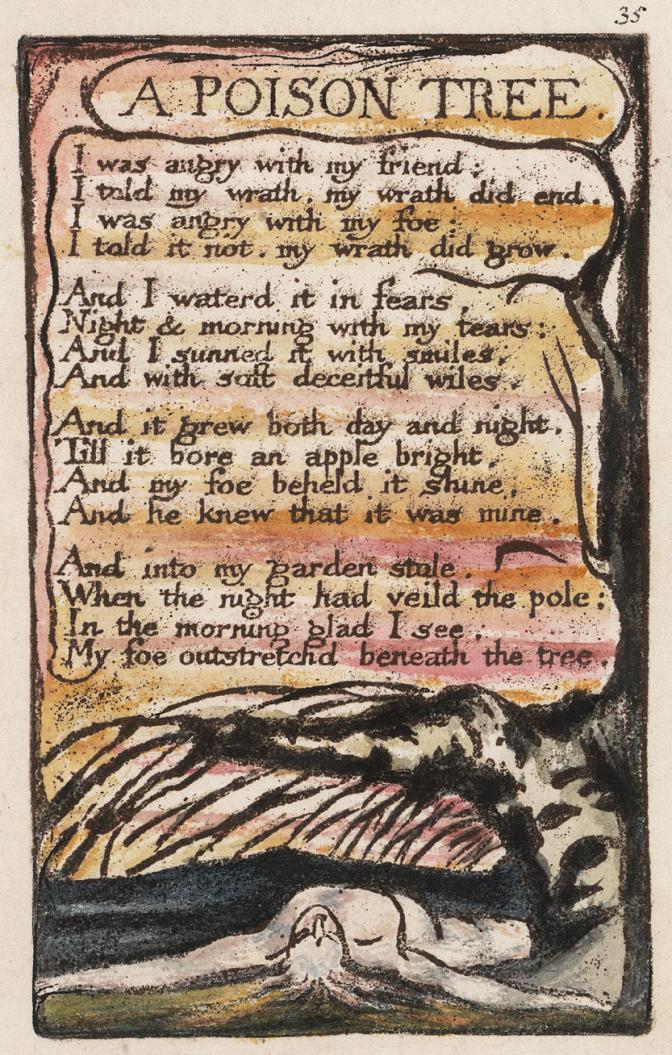 35
A POISON TREE.
I was angry with my friend:
I told my wrath, my wrath did end.
I was angry with my foe:
I told it not, my wrath did grow.
And I waterd it in fears,
Night & morning with my tears:
And I sunned it with smiles,
And with soft deceitful wiles.
And it grew both day and night,
Till it bore an apple bright,
And my foe beheld it shine,
And he knew that it was mine.
And into my garden stole,
When the night had veild the pole:
In the morning glad I see,
My foe outstretchd beneath the tree.